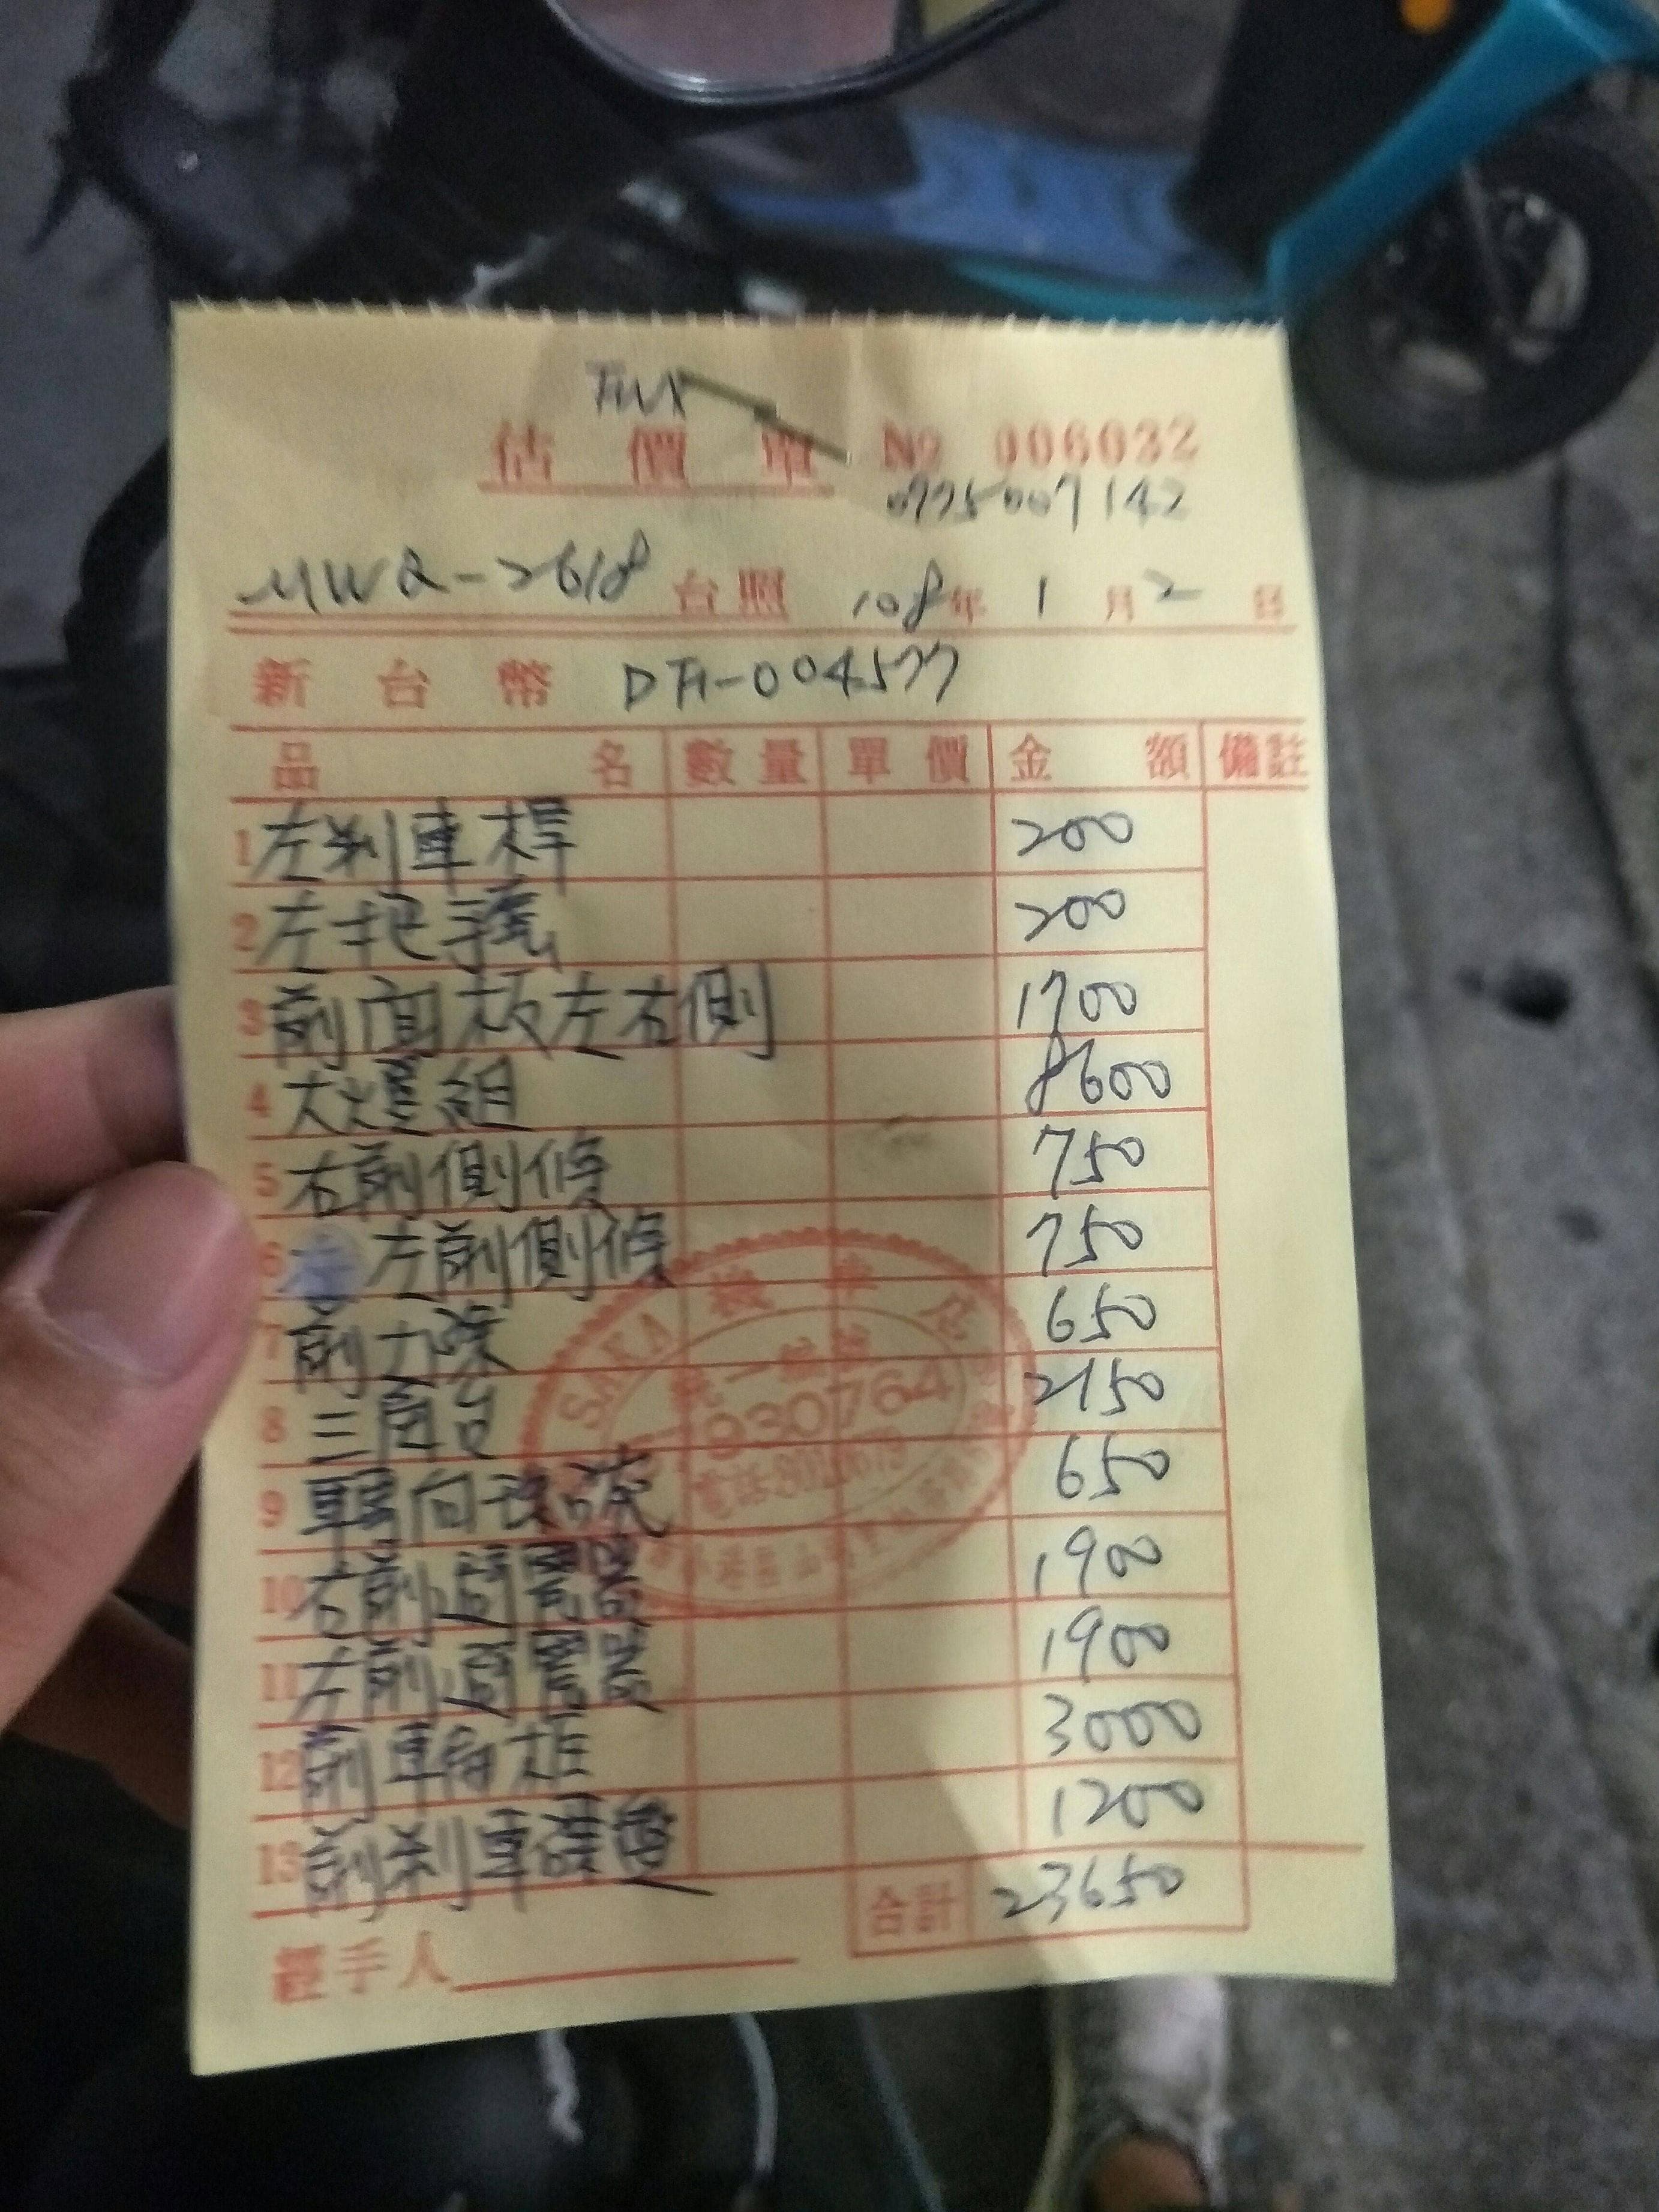 估價單 No 006032
MWQ-2618 台照 108年 1 月 2 日
新台幣
品名 數量 單價 金額 備註
1 左刹車桿 200
2 左把手 200
3 前面板左右側 1700
4 大燈組 8600
5 右前側條 750
6 左前側條 750
7 前土除 650
8 三角台 2150
9 轉向珠碗 650
10 右前避震器 1900
11 左前避震器 1900
12 前車輪框 3000
13 前刹車碟盤 1200
合計 23650
經手人
SAKA 機車
統一編號
930764
電話